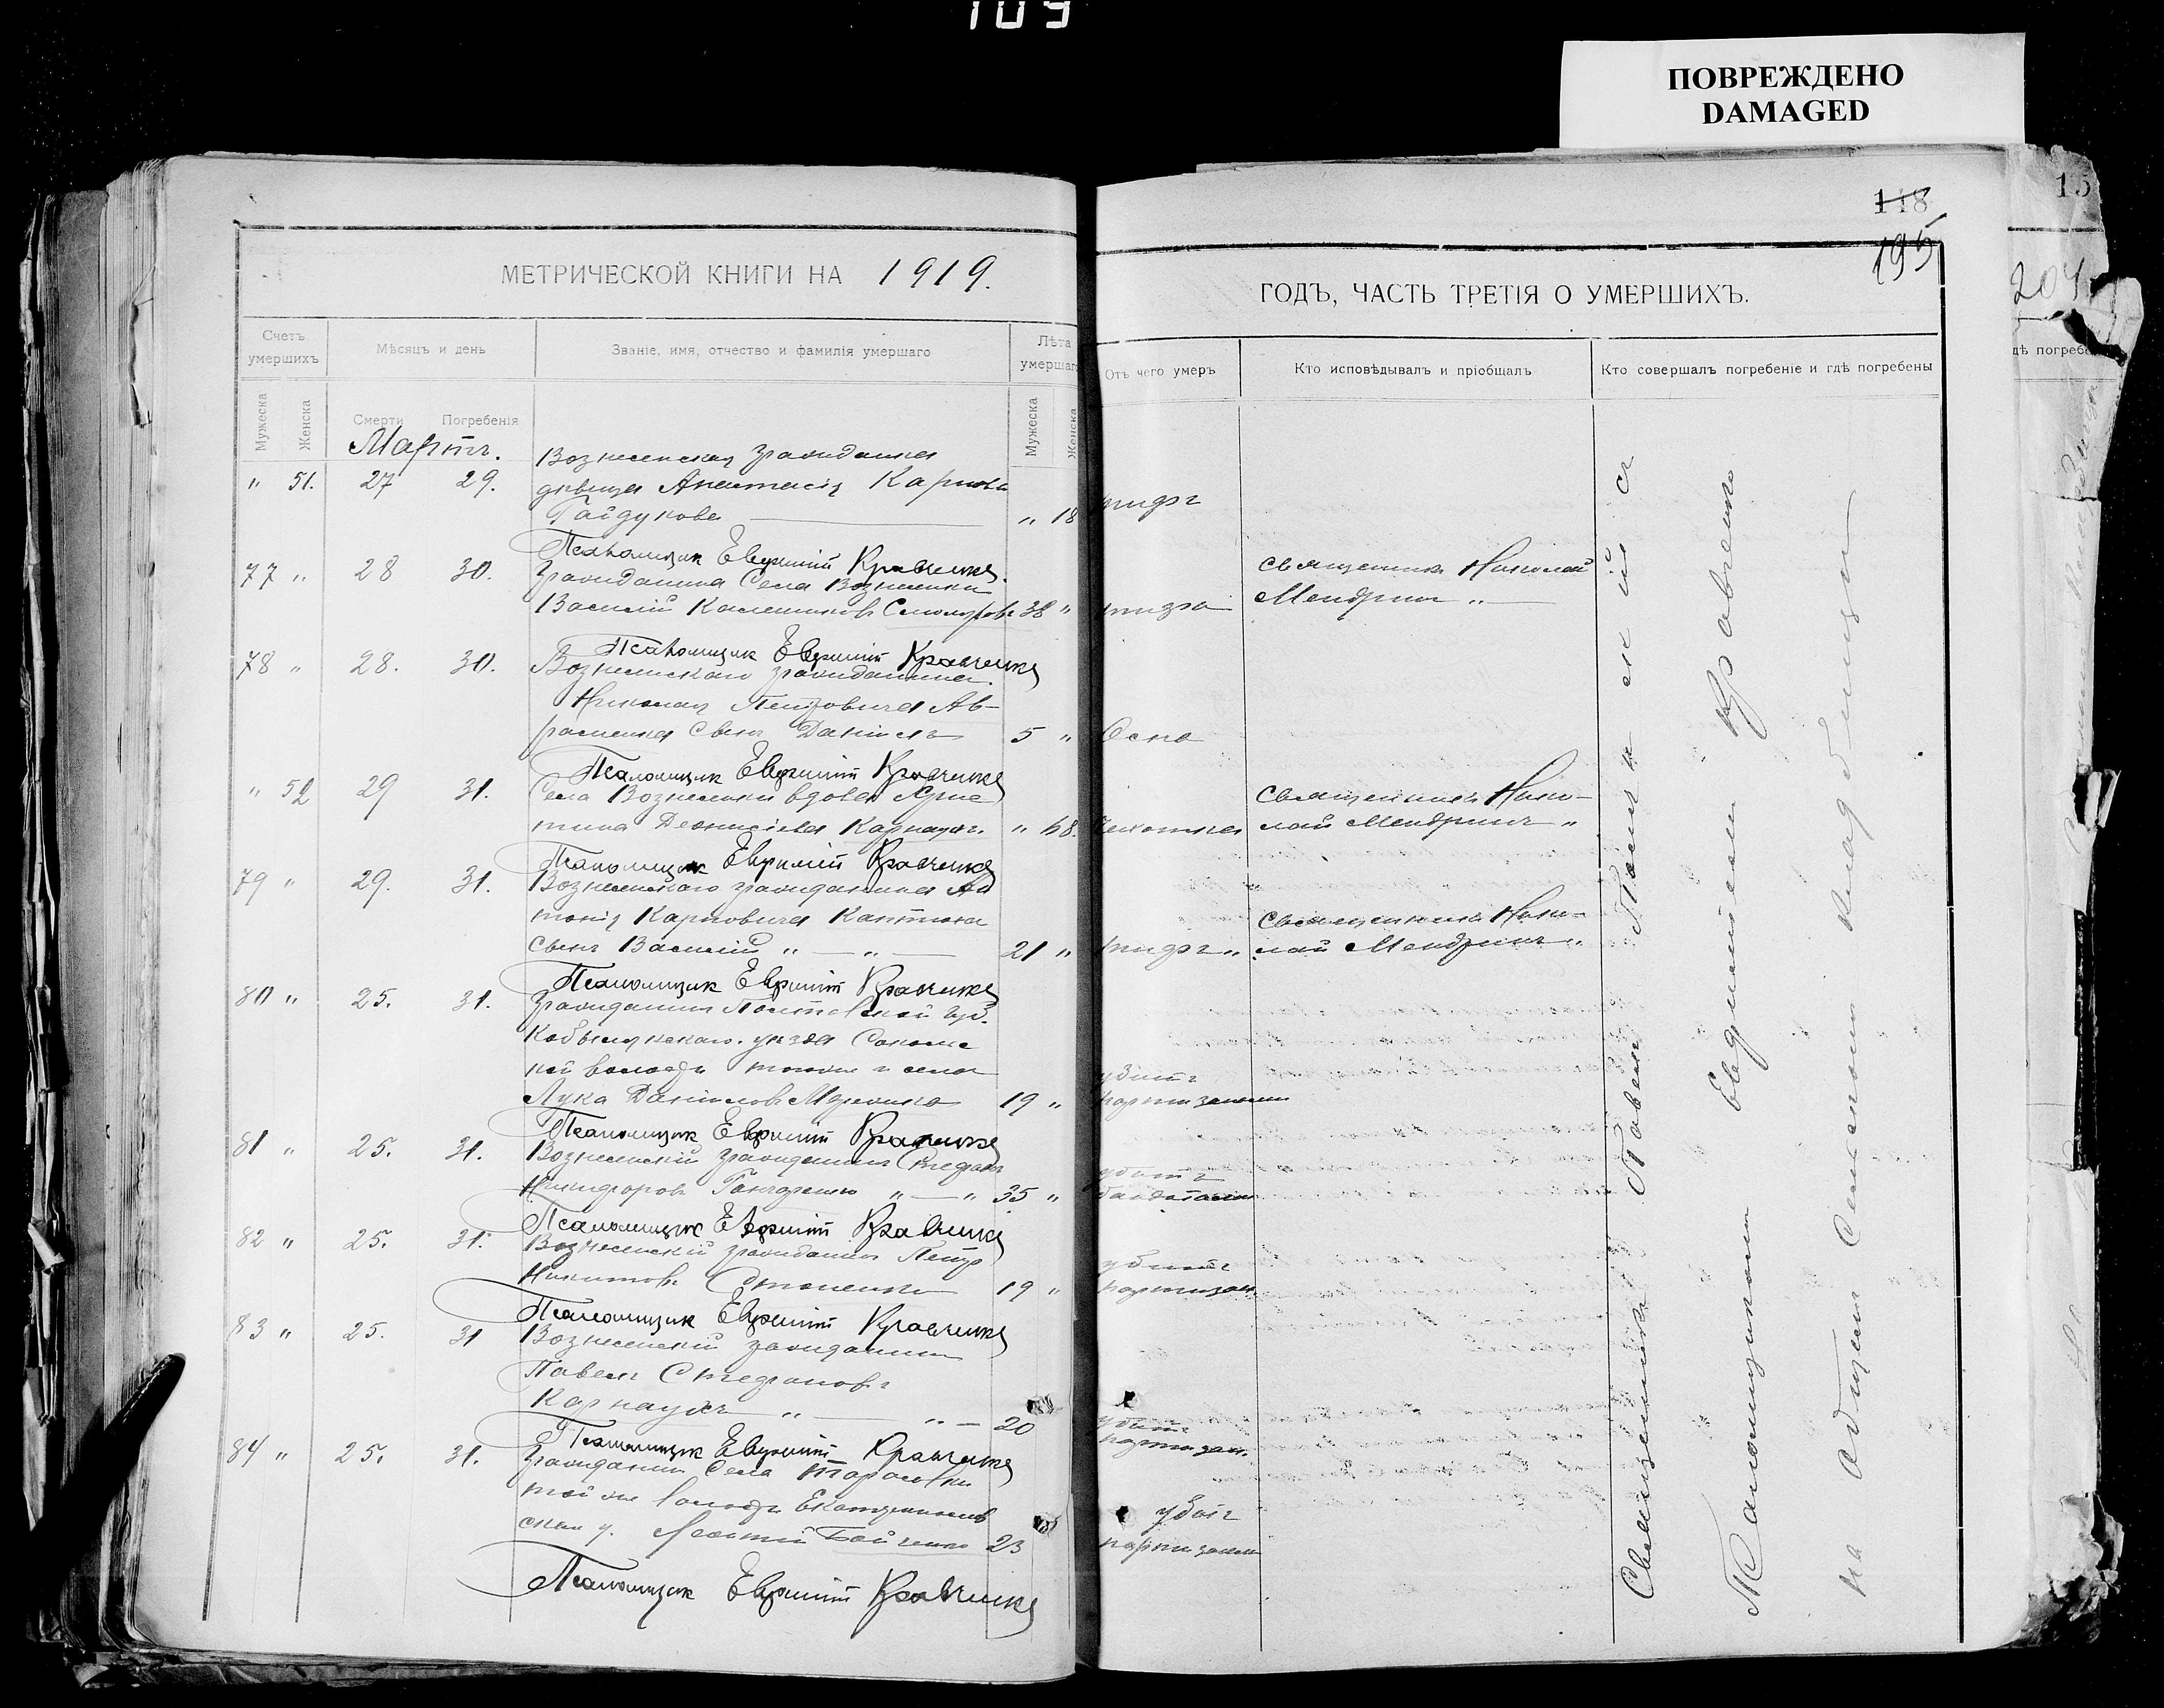 109
ПОВРЕЖДЕНО
DAMAGED
118
195
15
204
МЕТРИЧЕСКОЙ КНИГИ НА 1919.
ГОДЪ, ЧАСТЬ ТРЕТІЯ О УМЕРШИХЪ.
Счетъ умершихъ
Мѣсяцъ и день
Званіе, имя, отчество и фамилія умершаго
Лѣта умершаго
Отъ чего умеръ
Кто исповѣдывалъ и пріобщалъ
Кто совершалъ погребеніе и гдѣ погребены
Мужеска Женска Смерти Погребенія Мужеска Женска
Мартъ.
Вознесенская гражданка
" 51. 27 29. дѣвица Анастасія
Гайдукова " 18 тифъ
Псаломщикъ Евфимій Кравченко
77 " 28 30. гражданина Села Вознесенки
Василій 38 "
Священникъ Николай
Мендринъ "
Псаломщикъ Евфимій Кравченко
78 " 28. 30. Вознесенскаго гражданина
Николая Петровича Ав-
раменка сынъ Даніилъ 5 " Оспа
Псаломщикъ Евфимій Кравченко
" 52 29 31. Села Вознесенки вдова Хрис
тина Діонисіева Карнаухъ. " 68. чахотка
Священникъ Нико-
лай Мендринъ "
Псаломщикъ Евфимій Кравченко
79 " 29. 31. Вознесенскаго гражданина Ан
тонія Карповича
сынъ Василій " — " — 21 " тифъ "
Священникъ Нико-
лай Мендринъ "
Псаломщикъ Евфимій Кравченко
80 " 25. 31. гражданинъ Полтавской губ.
Кобылякскаго уѣзда
кой волости
Лука Даніиловъ 19 " убитъ
партизанами
Псаломщикъ Евфимій Кравченко
81 " 25. 31. Вознесенскій гражданинъ Стефанъ
Никифоровъ Гончаренко " — " 35 " убитъ
Псаломщикъ Евфимій Кравченко
82 " 25. 31. Вознесенскій гражданинъ Петръ
Никитовъ 19 " убитъ
партизан
Псаломщикъ Евфимій Кравченко
83 " 25. 31 Вознесенскій гражданинъ
Павелъ Стефановъ
Карнаухъ " — " — 20 убитъ
партизан.
Псаломщикъ Евфимій Кравченко
84 " 25. 31. гражданинъ Села Тарасовки
той же волости Екатеринослав
скаго у. Леонтій Бойченко 23 убитъ
партизанами
Псаломщикъ Евфимій Кравченко
Священникъ Павелъ
Псаломщикомъ Евфиміемъ Кравченко
на общемъ Сельскомъ кладбищѣ